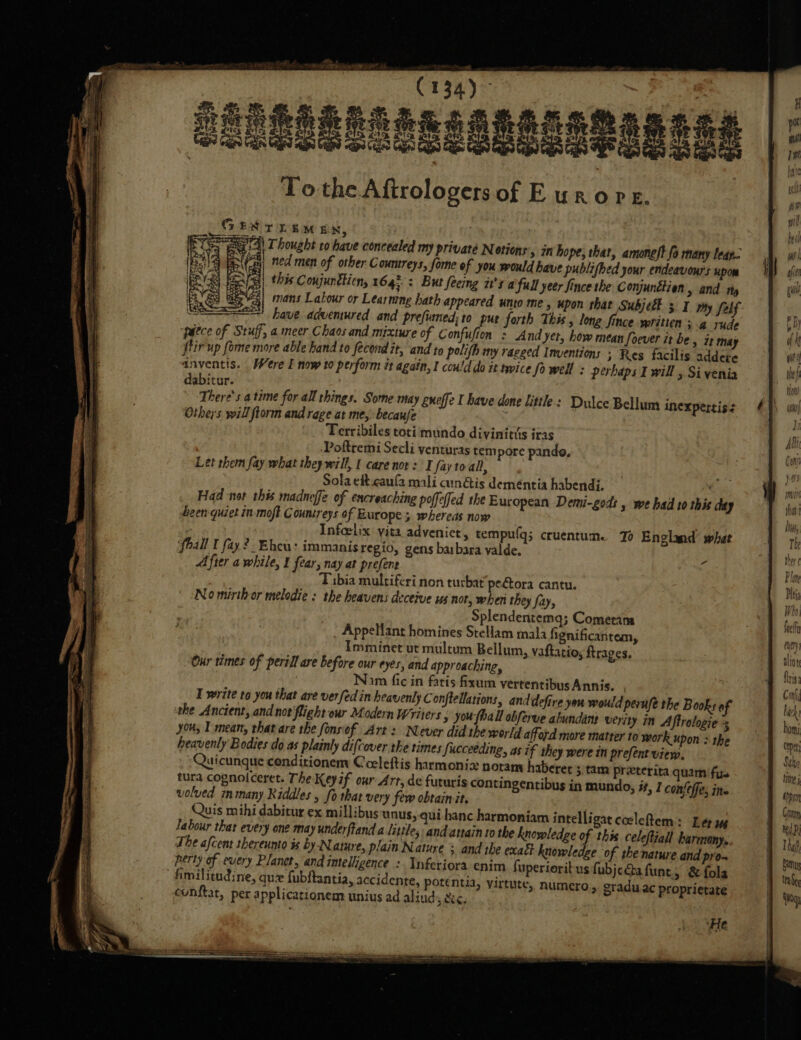 (134)
To the Aſtrologers of EUROPE.
GENTLEMEN,
I Thought to have concealed my private Notions, in hope, that, amongſt ſo many lear-
ned men of other Countreys, ſome of you would have publiſhed your endeavours upon
this Conjunction, 1642/3 : But ſeeing it's a full yeer ſince the Conjunction, and no
mans Labour or Learning hath appeared unto me, upon that Subject ; I my ſelf
have adventured and preſumed, to put forth This, long ſince written ; a rude
piece of Stuff, a meer Chaos and mixture of Confuſion : And yet, how mean ſoever it be, it may
ſtir up ſome more able hand to ſecond it, and to poliſh my ragged Inventions ; Res facilis addere
inventis. Were I now to perform it again, I could do it twice ſo well : perhaps I will, Si venia
dabitur.
There's a time for all things. Some may gueſſe I have done little : Dulce Bellum inexpertis :
Others will ſtorm and rage at me, becauſe
Terribiles toti mundo divinitùs iras
Poſtremi Secli venturas tempore pando.
Let them ſay what they will, I care not : I ſay to all,
Sola eſt cauſa mali cunctis dementia habendi.
Had not this madneſſe of encreaching poſſeſſed the European Demi-gods, we had to this day
been quiet in moſt Countreys of Europe ; whereas now
Infœlix vita advenict, tempuſq; cruentum. To England what
ſhall I ſay ? Eheu ! immanis regio, gens barbara valde.
After a while, I fear, nay at preſent
Tibia multifori non turbat pectora cantu.
No mirth or melodie : the heavens deceive us not, when they ſay,
Splendentemq; Cometam
Appellant homines Stellam mala ſignificantem,
Imminet ut multum Bellum, vaſtatio, ſtrages.
Our times of perill are before our eyes, and approaching,
Nam ſic in fatis fixum vertentibus Annis.
I write to you that are verſed in heavenly Conſtellations, and deſire you would peruſe the Books of
the Ancient, and not ſlight our Modern Writers, you ſhall obſerve abundant verity in Aſtrologie ;
you, I mean, that are the ſons of Art : Never did the world afford more matter to work upon : the
heavenly Bodies do as plainly diſcover the times ſucceeding, as if they were in preſent view.
Quicunque conditionem Cœleſtis harmoniæ notam haberet ; tam præterita quam fu-
tura cognoſceret. The Key if our Art, de futuris contingentibus in mundo, is, I confeſſe, in-
volved in many Riddles, ſo that very few obtain it.
Quis mihi dabitur ex millibus unus, qui hanc harmoniam intelligat cœleſtem : Let us
labour that every one may underſtand a little, and attain to the knowledge of this celeſtiall harmony.
The aſcent thereunto is by Nature, plain Nature ; and the exact knowledge of the nature and pro-
perty of every Planet, and intelligence : Inferiora enim ſuperioribus ſubjecta ſunt, & ſola
ſimilitudine, quæ ſubſtantia, accidente, potentia, virtute, numero, gradu ac proprietate
conſtat, per applicationem unius ad aliud, &c.
He